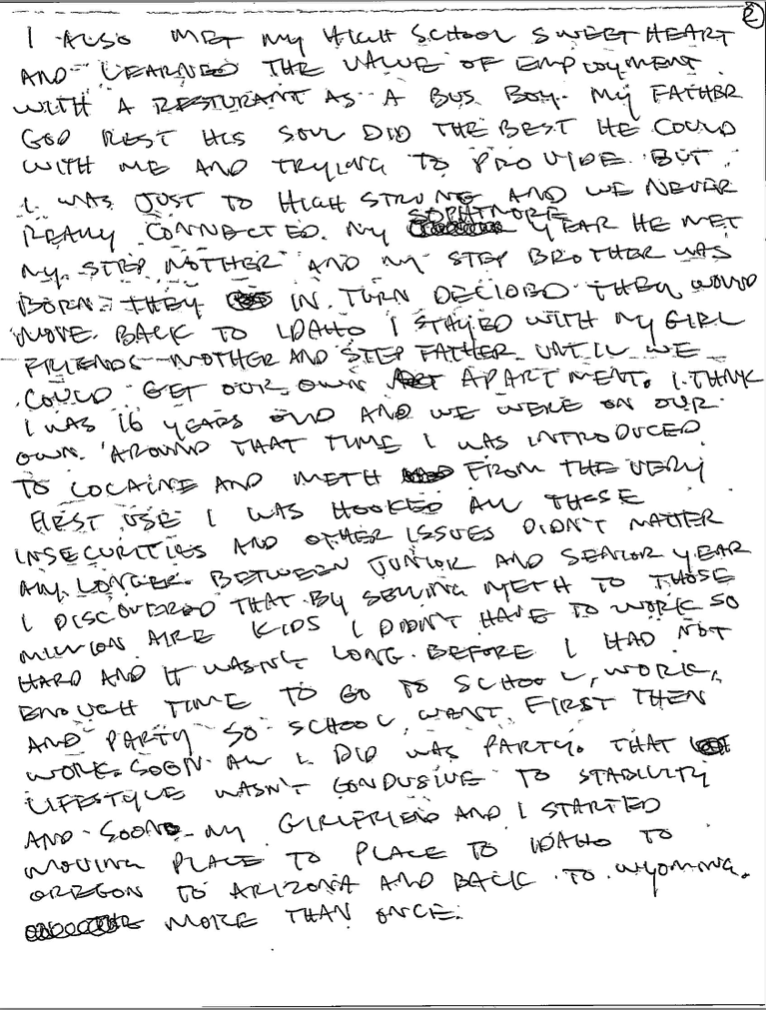 2
I ALSO MET MY HIGH SCHOOL SWEET HEART
AND LEARNED THE VALUE OF EMPLOYMENT
WITH A RESTURANT AS A BUS BOY. MY FATHER
GOD REST HIS SOUL DID THE BEST HE COULD
WITH ME AND TRYING TO PROVIDE. BUT
I WAS JUST TO HIGH STRUNG AND WE NEVER
REALLY CONNECTED. MY SOPHTMORE YEAR HE MET
MY STEP MOTHER AND MY STEP BROTHER WAS
BORN. THEY IN TURN DECIDED THEY WOULD
MOVE BACK TO IDAHO I STAYED WITH MY GIRL
FRIENDS MOTHER AND STEP FATHER UNTIL WE
COULD GET OUR OWN APARTMENT. I THINK
I WAS 16 YEARS OLD AND WE WERE ON OUR
OWN. AROUND THAT TIME I WAS INTRODUCED
TO COCAINE AND METH FROM THE VERY
FIRST USE I WAS HOOKED ALL THOSE
INSECURITIES AND OTHER ISSUES DIDN'T MATTER
ANY LONGER. BETWEEN JUNIOR AND SENIOR YEAR
I DISCOVERED THAT BY SELLING METH TO THOSE
MILLION AIRE KIDS I DIDN'T HAVE TO WORK SO
HARD AND IT WASN'T LONG BEFORE I HAD NOT
ENOUGH TIME TO GO TO SCHOOL, WORK,
AND PARTY SO SCHOOL WENT FIRST THEN
WORK. SOON ALL I DID WAS PARTY. THAT
LIFESTYLE WASN'T CONDUSIVE TO STABILITY
AND SOON MY GIRLFRIEND AND I STARTED
MOVING PLACE TO PLACE TO IDAHO TO
OREGON TO ARIZONA AND BACK TO WYOMING.
MORE THAN ONCE.